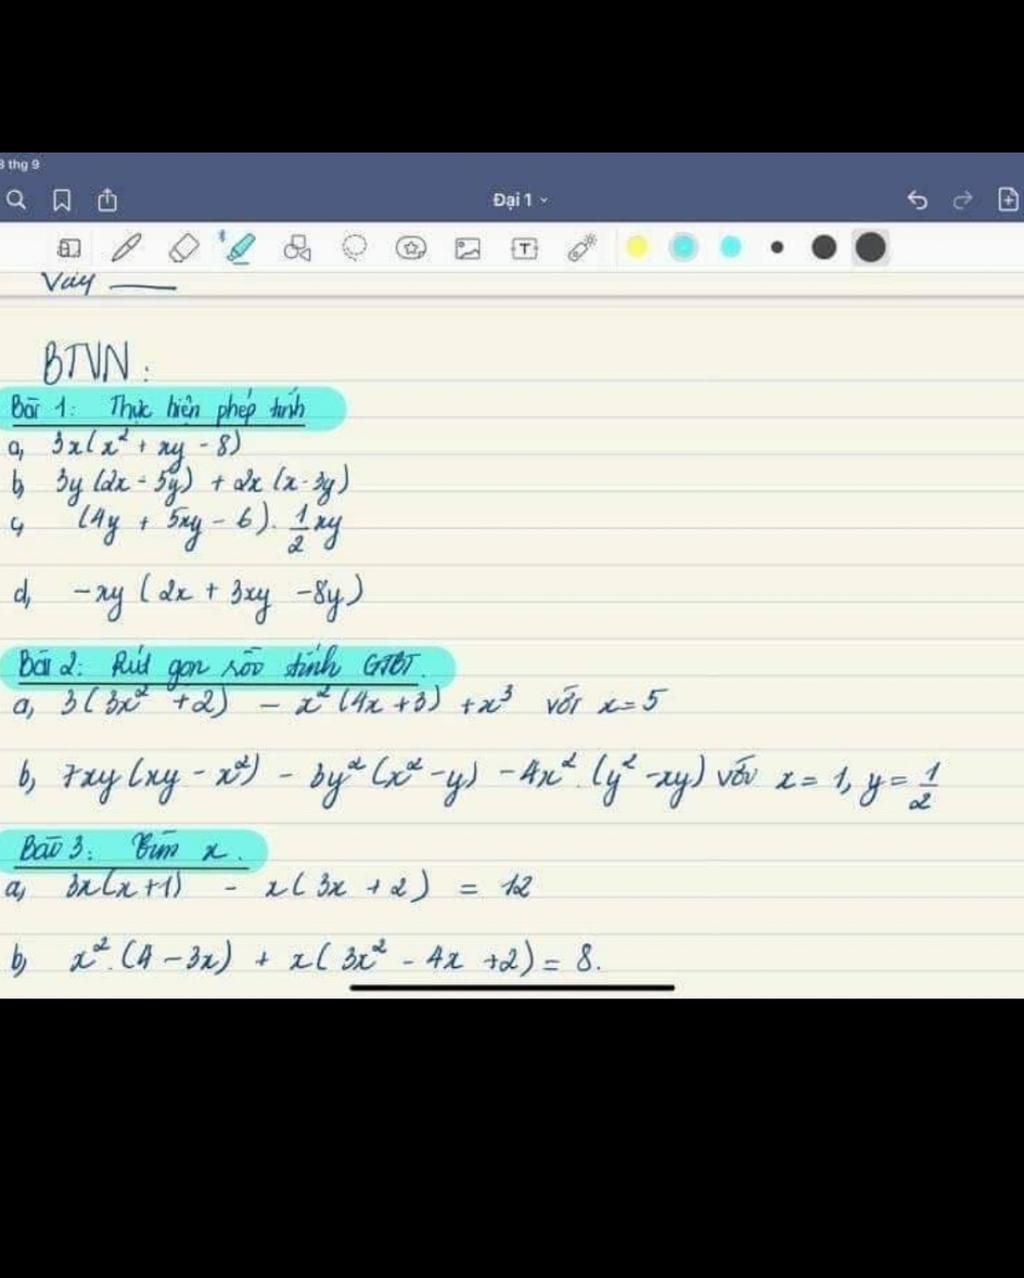 3 thg 9
Đại 1
Vậy
BTVN:
Bài 1: Thực hiện phép tính
a, 3x(x² + xy - 8)
b, 3y (2x - 5y) + 2x (x - 3y)
c, (4y + 5xy - 6). 1/2 xy
d, -xy (2x + 3xy - 8y)
Bài 2: Rút gọn rồi tính GTBT.
a, 3(3x² + 2) - x² (4x + 3) + x³ với x = 5
b, 7xy (xy - x²) - 3y² (x² - y) - 4x². (y² - xy) với x = 1, y = 1/2
Bài 3: Tìm x.
a, 3x(x+1) - x( 3x + 2) = 12
b, x². (4 - 3x) + x( 3x² - 4x + 2) = 8.